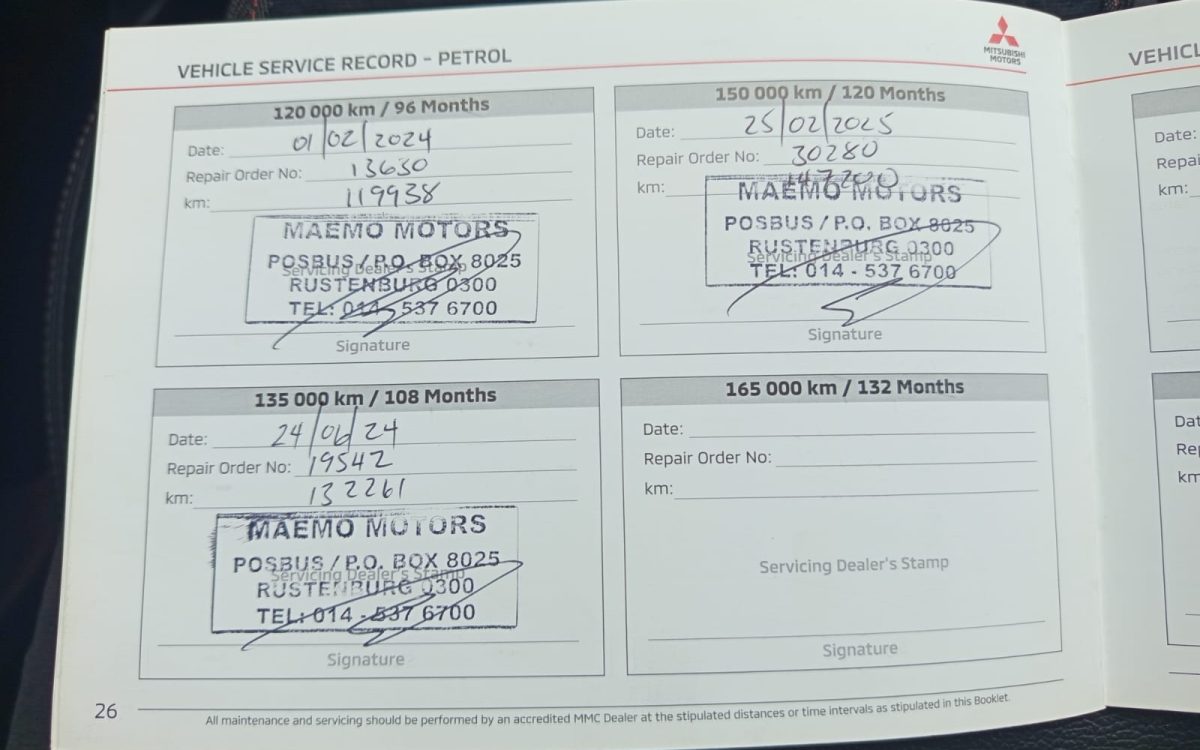 VEHICLE SERVICE RECORD - PETROL
MITSUBISHI
MOTORS
120 000 km / 96 Months
Date: 01/02/2024
Repair Order No: 13630
km: 119938
MAEMO MOTORS
POSBUS / P.O. BOX 8025
Servicing Dealer's Stamp
RUSTENBURG 0300
TEL: 014 - 537 6700
Signature
150 000 km / 120 Months
Date: 25/02/2025
Repair Order No: 30280
km: 147200
MAEMO MOTORS
POSBUS / P.O. BOX 8025
RUSTENBURG 0300
Servicing Dealer's Stamp
TEL: 014 - 537 6700
Signature
135 000 km / 108 Months
Date: 24/06/24
Repair Order No: 19542
km: 132261
MAEMO MOTORS
POSBUS / P.O. BOX 8025
Servicing Dealer's Stamp
RUSTENBURG 0300
TEL: 014 - 537 6700
Signature
165 000 km / 132 Months
Date:
Repair Order No:
km:
Servicing Dealer's Stamp
Signature
26
All maintenance and servicing should be performed by an accredited MMC Dealer at the stipulated distances or time intervals as stipulated in this Booklet.
VEHICL
Date:
Repai
km:
Dat
Rep
km